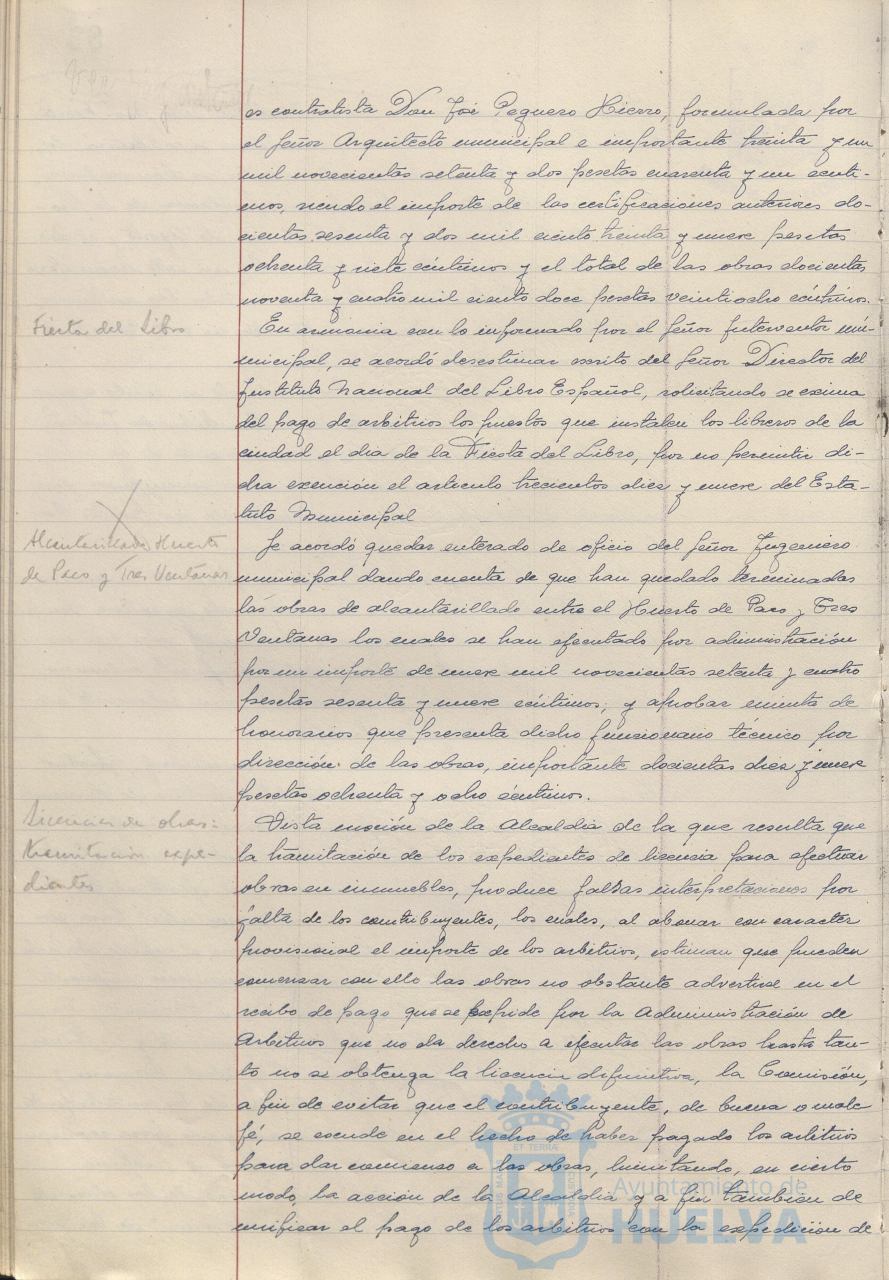 es contratista Don José Peguero Hierro, formulada por
el Señor Arquitecto municipal e importante treinta y un
mil novecientas setenta y dos pesetas cuarenta y un centi-
mos, siendo el importe de las certificaciones anteriores do-
cientas sesenta y dos mil ciento treinta y nueve pesetas
ochenta y siete céntimos y el total de las obras docientas
noventa y cuatro mil ciento doce pesetas veintiocho céntimos.
Fiesta del Libro
En armonia con lo informado por el Señor Interventor mu-
nicipal, se acordó desestimar escrito del Señor Director del
Instituto Nacional del Libro Español, solicitando se exima
del pago de arbitrios los puestos que instalen los libreros de la
ciudad el dia de la Fiesta del Libro, por no permitir di-
cha exención el articulo trecientos diez y nueve del Esta-
tuto Municipal
Alcantarillado Huerto
de Paco y Tres Ventanas
Se acordó quedar enterado de oficio del Señor Ingeniero
municipal dando cuenta de que han quedado terminadas
las obras de alcantarillado entre el Huerto de Paco y Tres
Ventanas los cuales se han ejecutado por administración
por un importe de nueve mil novecientas setenta y cuatro
pesetas sesenta y nueve céntimos; y aprobar minuta de
honorarios que presenta dicho funcionario técnico por
dirección de las obras, importante docientas diez y nueve
pesetas ochenta y ocho céntimos.
Licencias de obras:
tramitacion expe-
dientes
Vista moción de la Alcaldia de la que resulta que
la tramitación de los expedientes de licencia para efectuar
obras en inmuebles, produce falsas interpretaciones por
falta de los contribuyentes, los cuales, al abonar con caracter
provisional el importe de los arbitrios, estiman que pueden
comenzar con ello las obras no obstante advertirse en el
recibo de pago que se expide por la Administración de
Arbitrios que no da derecho a ejecutar las obras hasta tan-
to no se obtenga la licencia definitiva, la Comisión,
a fin de evitar que el contribuyente, de buena o mala
fé, se escude en el hecho de haber pagado los arbitrios
para dar comienzo a las obras, limitando, en cierto
modo, la acción de la Alcaldia y a fin tambien de
unificar el pago de los arbitrios con la expedición de
Ayuntamiento de
HUELVA